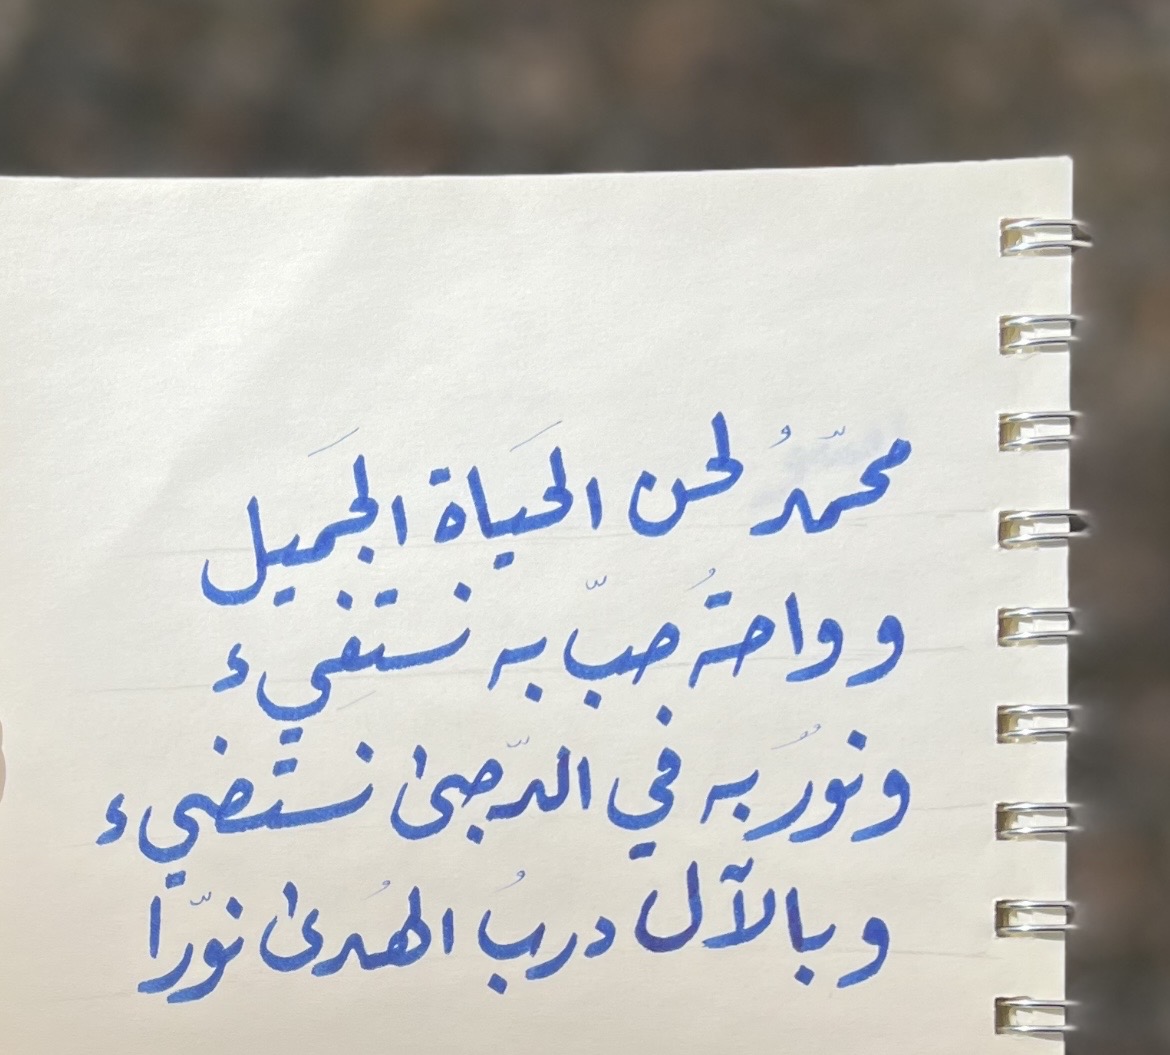 محمّدُ لحن الحَياة الجَميل
وواحةُ حبّ به نستفيء
ونورٌ به في الدّجىٰ نستضيء
وبالآل دربُ الهُدىٰ نوّرا